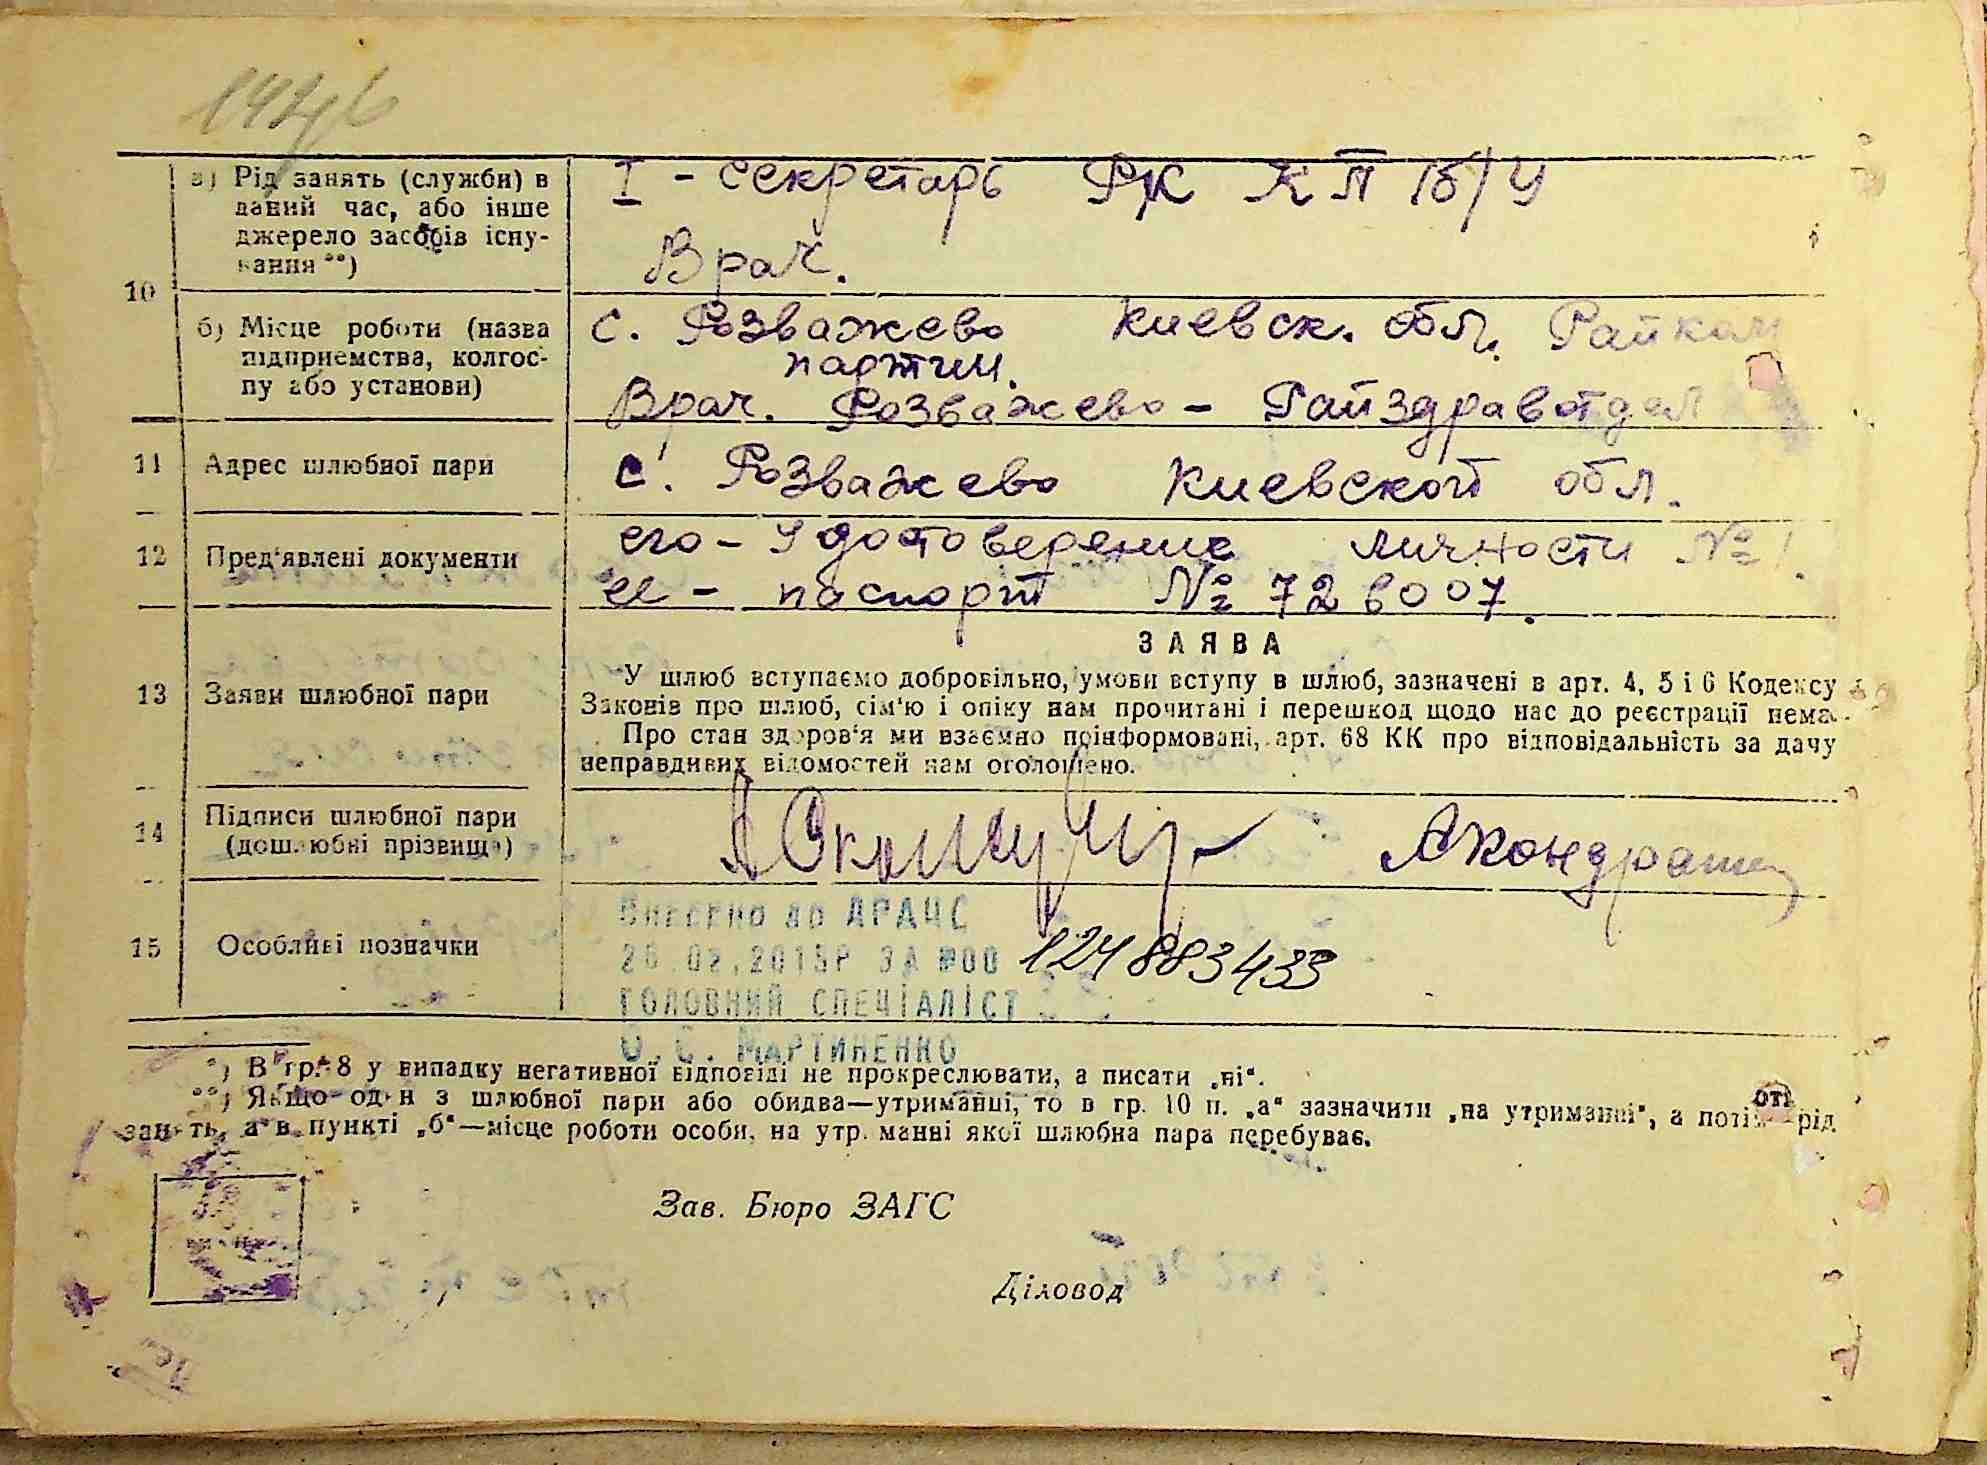 1946
а) Рід занять (служби) в
даний час, або інше
джерело засобів існу-
вання **)
I - секретарь РК КП/б/У
Врач.
10
б) Місце роботи (назва
підприємства, колгос-
пу або установи)
с. Розважево Киевск. обл. Райком
партии.
Врач. Розважево - Райздравотдел
11 Адрес шлюбної пари
с. Розважево Киевской обл.
12 Пред'явлені документи
его - Удостоверение личности № 1.
ее - паспорт № 726007.
13 Заяви шлюбної пари
ЗАЯВА
У шлюб вступаємо добровільно, умови вступу в шлюб, зазначені в арт. 4, 5 і 6 Кодексу
Законів про шлюб, сім'ю і опіку нам прочитані і перешкод щодо нас до реєстрації нема.
Про стан здоров'я ми взаємно поінформовані, арт. 68 КК про відповідальність за дачу
неправдивих відомостей нам оголошено.
14 Підписи шлюбної пари
(дошлюбні прізвища)
15 Особливі позначки
Внесено до ДРАЦС
за №00 124883433
головний спеціаліст
О.С. Мартиненко
*) В гр. 8 у випадку негативної відповіді не прокреслювати, а писати „ні“.
**) Якщо один з шлюбної пари або обидва—утриманці, то в гр. 10 п. „а“ зазначити „на утриманні“, а потім рід
занять, а в пункті „б“—місце роботи особи, на утриманні якої шлюбна пара перебуває.
Зав. Бюро ЗАГС
Діловод